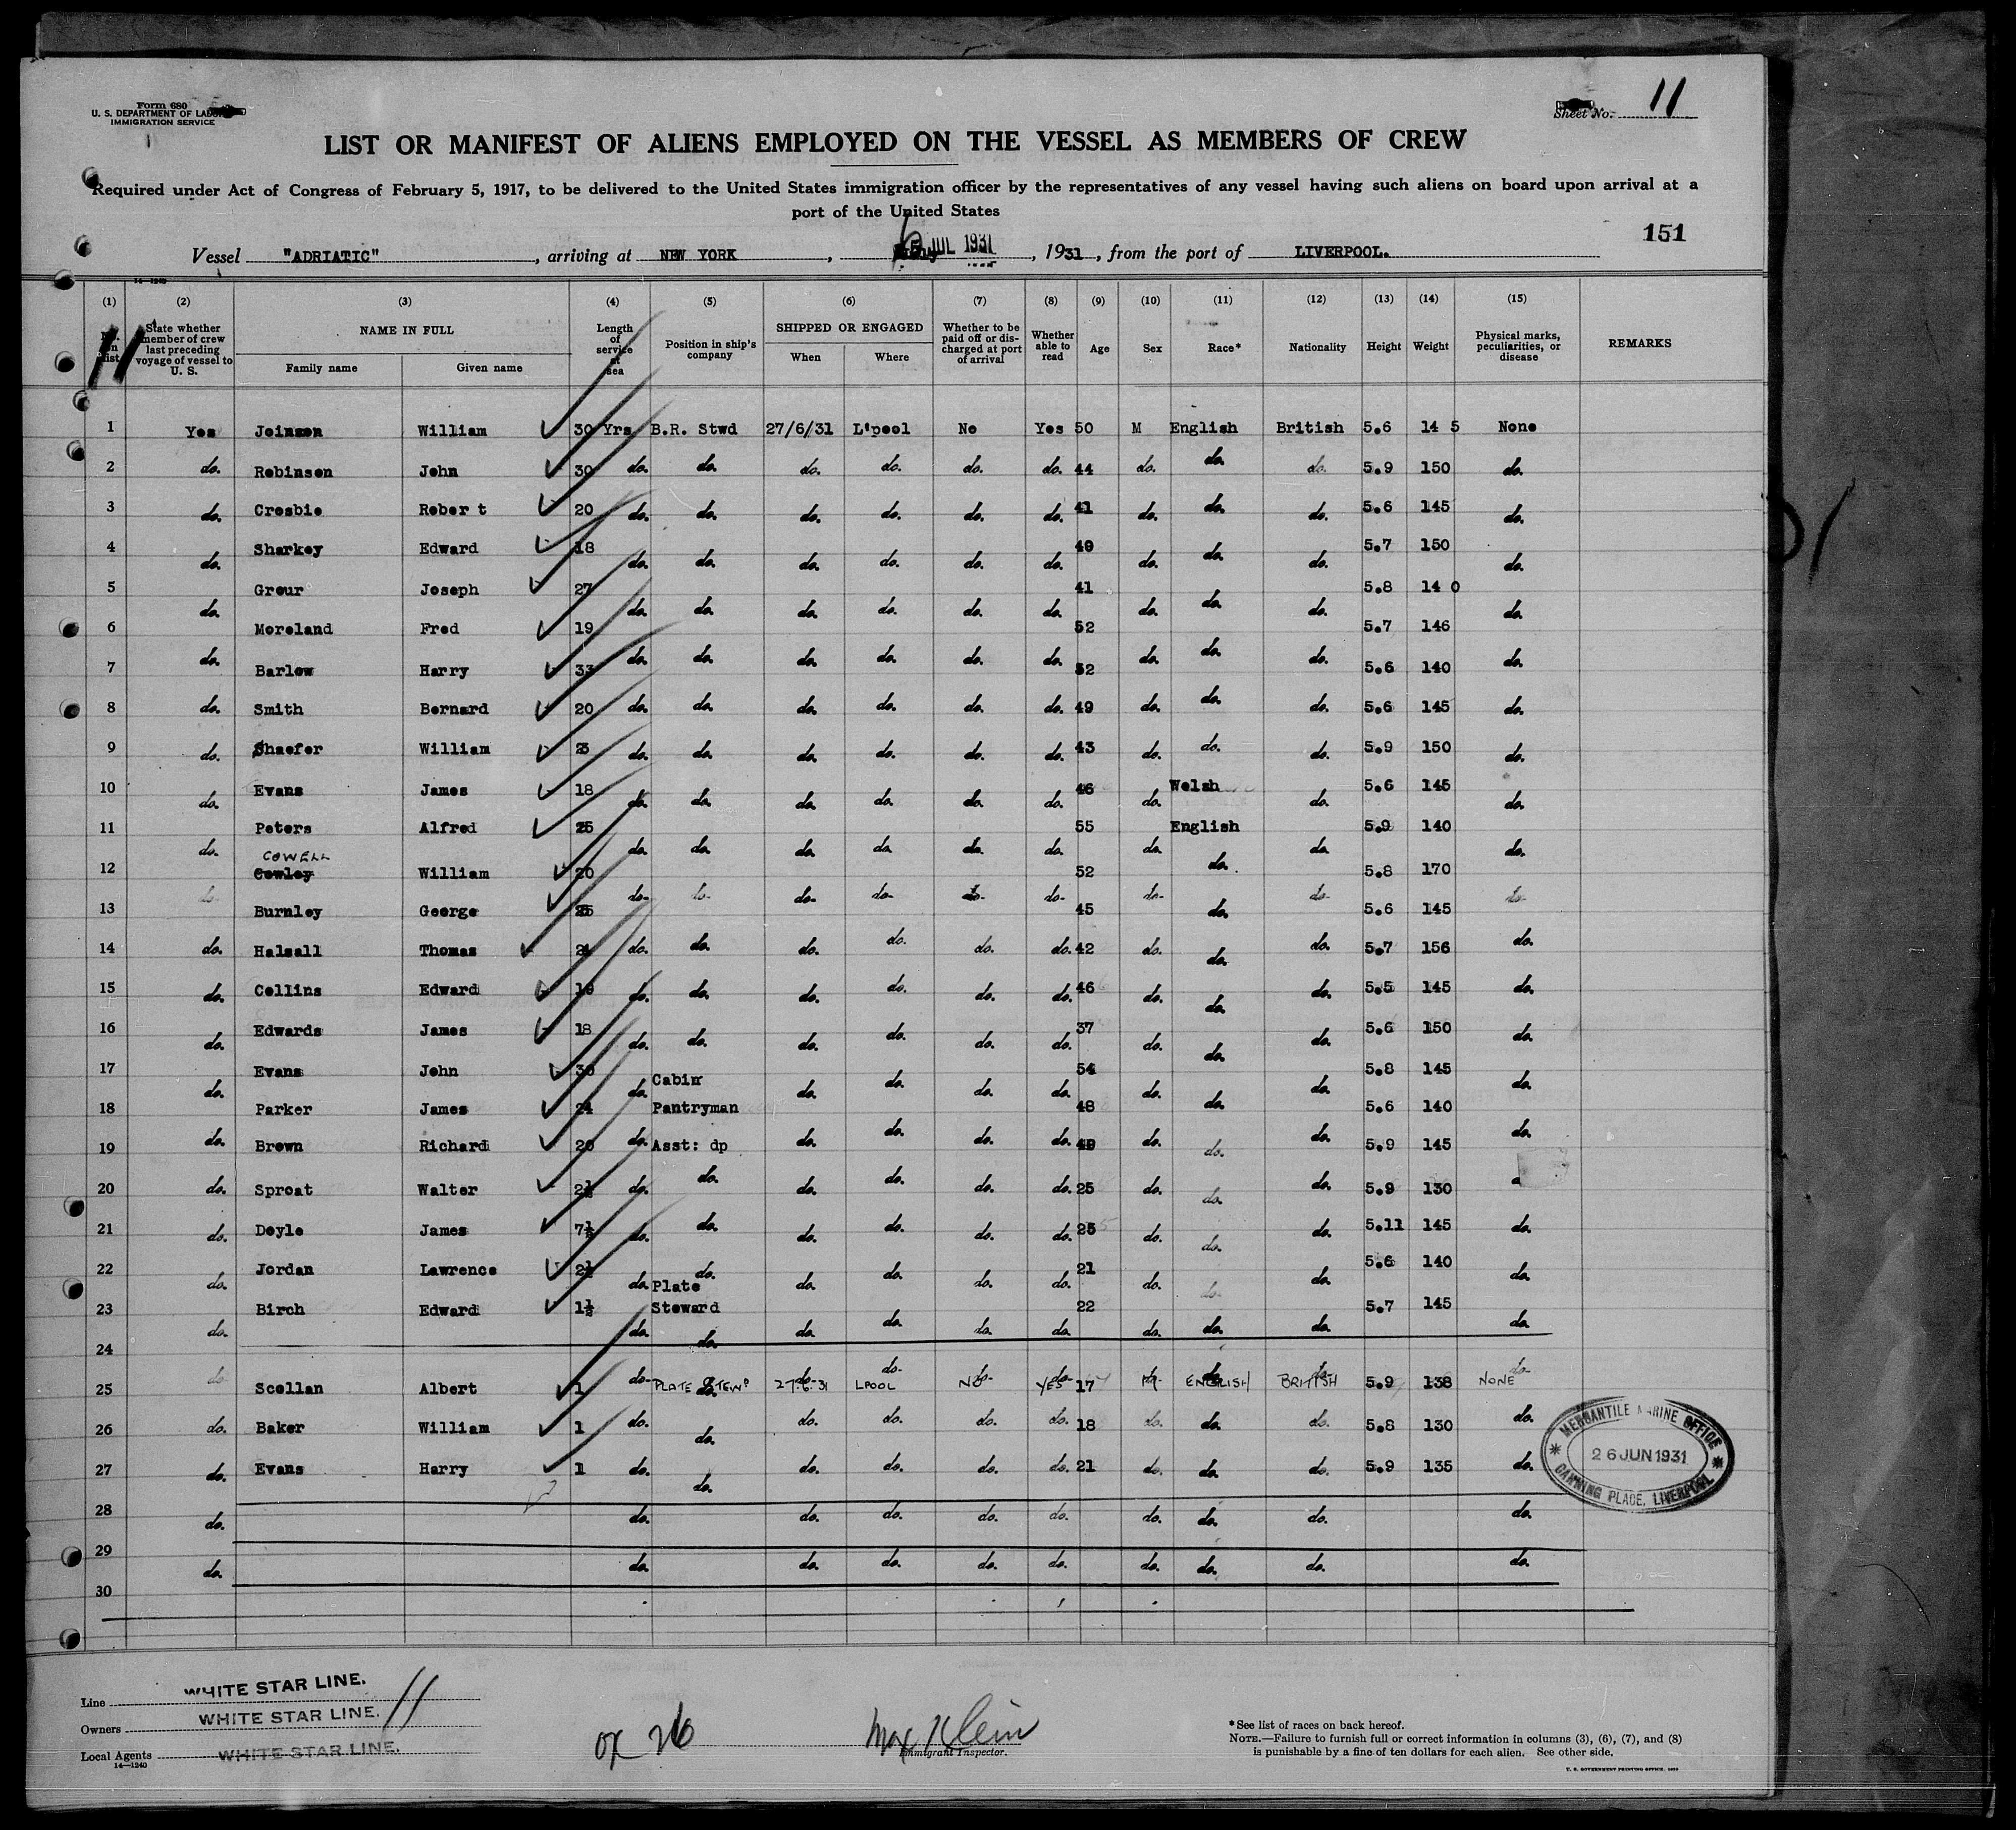 Form 680
U. S. DEPARTMENT OF LABOR
IMMIGRATION SERVICE
Sheet No. 11
LIST OR MANIFEST OF ALIENS EMPLOYED ON THE VESSEL AS MEMBERS OF CREW
Required under Act of Congress of February 5, 1917, to be delivered to the United States immigration officer by the representatives of any vessel having such aliens on board upon arrival at a
port of the United States
151
Vessel "ADRIATIC", arriving at NEW YORK, JUL 1931, 1931, from the port of LIVERPOOL.
(1) (2) (3) (4) (5) (6) (7) (8) (9) (10) (11) (12) (13) (14) (15)
No. on list State whether member of crew last preceding voyage of vessel to U. S. NAME IN FULL Family name Given name Length of service at sea Position in ship's company SHIPPED OR ENGAGED When Where Whether to be paid off or discharged at port of arrival Whether able to read Age Sex Race* Nationality Height Weight Physical marks, peculiarities, or disease REMARKS
11
1 Yes Joinson William 30 Yrs B.R. Stwd 27/6/31 L'pool No Yes 50 M English British 5.6 14 5 None
2 do. Robinson John 30 do. do. do. do. do. do. 44 do. do. do. 5.9 150 do.
3 do. Crosbie Rober t 20 do. do. do. do. do. do. 41 do. do. do. 5.6 145 do.
4 do. Sharkey Edward 18 do. do. do. do. do. do. 49 do. do. do. 5.7 150 do.
5 do. Grour Joseph 27 do. do. do. do. do. do. 41 do. do. do. 5.8 14 0 do.
6 do. Moreland Fred 19 do. do. do. do. do. do. 52 do. do. do. 5.7 146 do.
7 do. Barlow Harry 33 do. do. do. do. do. do. 52 do. do. do. 5.6 140 do.
8 do. Smith Bernard 20 do. do. do. do. do. do. 49 do. do. do. 5.6 145 do.
9 do. Shaefer William do. do. do. do. do. do. 43 do. do. do. 5.9 150 do.
10 do. Evans James 18 do. do. do. do. do. do. 46 do. Welsh do. 5.6 145 do.
11 do. Peters Alfred 25 do. do. do. do. do. do. 55 do. English do. 5.9 140 do.
COWELL
12 do. Cowley William 20 do. do. do. do. do. do. 52 do. do. do. 5.8 170 do.
13 Burnley George 25 45 do. 5.6 145
14 do. Halsall Thomas 24 do. do. do. do. do. do. 42 do. do. do. 5.7 156 do.
15 do. Collins Edward 19 do. do. do. do. do. do. 46 do. do. do. 5.5 145 do.
16 do. Edwards James 18 do. do. do. do. do. do. 37 do. do. do. 5.6 150 do.
17 do. Evans John 30 do. Cabin do. do. do. do. 54 do. do. do. 5.8 145 do.
18 Parker James 24 Pantryman 48 do. 5.6 140
19 do. Brown Richard 20 do. Asst: dp do. do. do. do. 49 do. do. do. 5.9 145 do.
20 do. Sproat Walter 2½ do. do. do. do. do. do. 25 do. do. do. 5.9 130
21 do. Doyle James 7½ do. do. do. do. do. do. 25 do. do. do. 5.11 145 do.
22 do. Jordan Lawrence 2½ do. do. do. do. do. do. 21 do. do. do. 5.6 140 do.
Plate
23 do. Birch Edward 1½ do. Steward do. do. do. do. 22 do. do. do. 5.7 145 do.
24
25 do. Scollan Albert 1 do. PLATE STEWD 27.6.31 LPOOL NO YES 17 M ENGLISH BRITISH 5.9 138 NONE
26 do. Baker William 1 do. do. do. do. do. do. 18 do. do. do. 5.8 130 do.
27 do. Evans Harry 1 do. do. do. do. do. do. 21 do. do. do. 5.9 135 do.
28 do. do. do. do. do. do. do. do. do. do.
29 do. do. do. do. do. do. do. do. do. do.
30
MERCANTILE MARINE OFFICE
26 JUN 1931
CANNING PLACE, LIVERPOOL
Line WHITE STAR LINE. 11
Owners WHITE STAR LINE.
Local Agents WHITE STAR LINE.
14—1240
26
Max Klein
Immigrant Inspector.
*See list of races on back hereof.
NOTE.—Failure to furnish full or correct information in columns (3), (6), (7), and (8)
is punishable by a fine of ten dollars for each alien. See other side.
U. S. GOVERNMENT PRINTING OFFICE